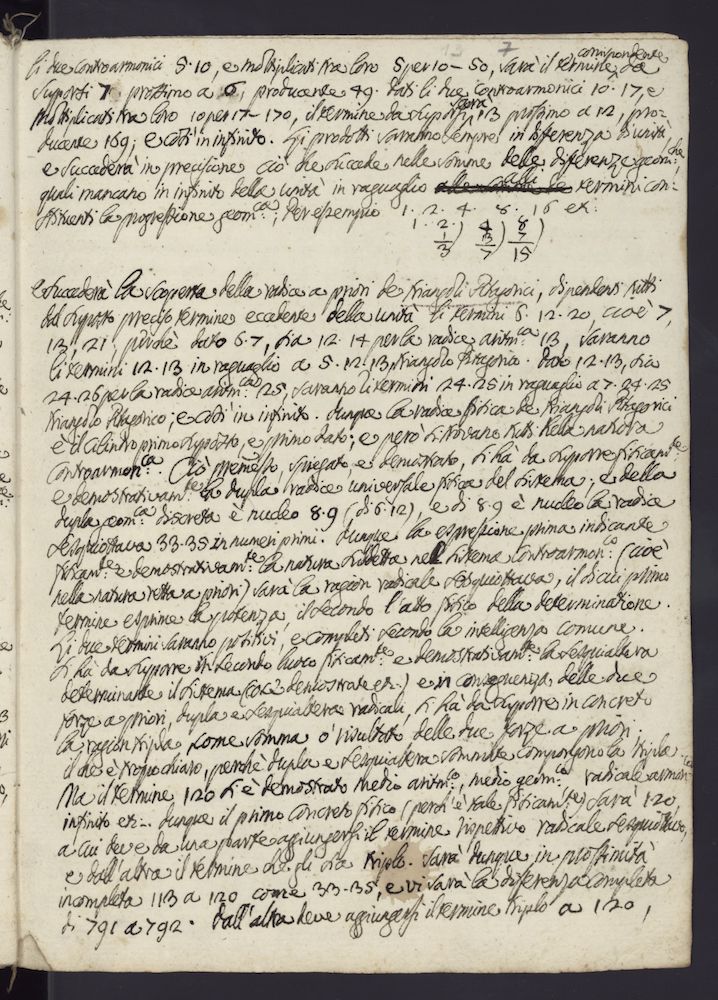 7
li due controarmonici 5·10, e moltiplicati tra loro 5 per 10 – 50, sarà il termine corrispondente da
supporsi 7 prossimo a 6, producente 49. Dati li due controarmonici 10·17, e
moltiplicati tra loro 10 per 17 – 170, il termine da supporsi sarà 13 prossimo a 12, pro-
ducente 169; e così in infinito. Li prodotti saranno sempre in differenza di unità
e succederà in precisione ciò che succede nelle somme delle differenze geom:che
quali mancano in infinito della unità in raguaglio termini con-
stituenti la progressione geom:ca; per esempio 1· 2· 4· 8· 16 ec:
1· 2 / 1 / 3) 4 / 3 / 7) 8 / 7 / 15)
e succederà la scoperta della radice a priori de triangoli Pitagorici, dipendenti tutti
dal supposto preciso termine eccedente della unità li termini 6· 12· 20, cioè 7,
13, 21; poiché dato 6·7, sia 12· 14 per la radice aritm:ca 13, saranno
li termini 12·13 in raguaglio a 5·12·13, triangolo Pitagorico. Dato 12·13, sia
24·26 per la radice aritm:ca 25, saranno li termini 24·25 in raguaglio a 7·24·25
triangolo Pitagorico; e così in infinito. Dunque la radice fisica de triangoli Pitagorici
è il cilindro primo supposto, e primo dato; e però si trovano tutti nella natura
controarmon:ca. Ciò premesso, spiegato e demostrato, si ha da supporre fisicam:te
e demostrativam:te la dupla radice universale fisica del sistema; e della
dupla geom:ca discreta è nucleo 8·9 (di 6·12), e di 8·9 è nucleo la radice
sesquiottava 33·35 in numeri primi. Dunque la espressione prima indicante
fisicam:te e demostrativam:te la natura suddetta nel sistema controarmon:co (cioè
nella natura retta a priori) sarà la ragion radicale sesquiottava, il di cui primo
termine esprime la potenza, il secondo l'atto fisico della determinazione.
Li due termini saranno positivi, e completi secondo la intelligenza comune.
Si ha da supporre in secondo luoco fisicam:te e demostrativam:te la sesquialtera
determinante il sistema (cose demostrate ec:) e in conseguenza delle due
forze a priori, dupla e sesquialtera radicali, si ha da supporre in concreto
la ragion tripla come somma o risultato delle due forze a priori.
il che è troppo chiaro, perché dupla e sesquialtera sommate compongono la tripla.
Ma il termine 120 si è demostrato medio aritm:co, medio geom:co radicale armon:
infinito ec:. Dunque il primo concreto fisico (perch'è tale fisicam:te) sarà 120,
a cui deve da una parte aggiungersi il termine rispettivo radicale sesquiottavo,
e dall'altra il termine che gli sia triplo. Sarà dunque in prossimità
incompleta 113 a 120 come 33·35, e vi sarà la differenza completa
di 791 a 792. Dall'altra deve aggiungersi il termine triplo a 120,